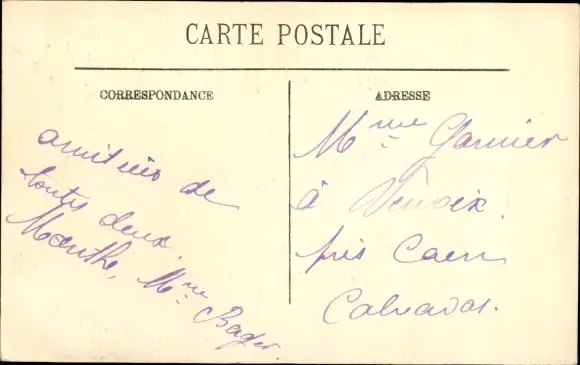 CARTE POSTALE
CORRESPONDANCE
ADRESSE
amitiés de
toutes deux.
Marthe, Mme
Bager
Mme Garnier
à Venoix
près Caen
Calvados.